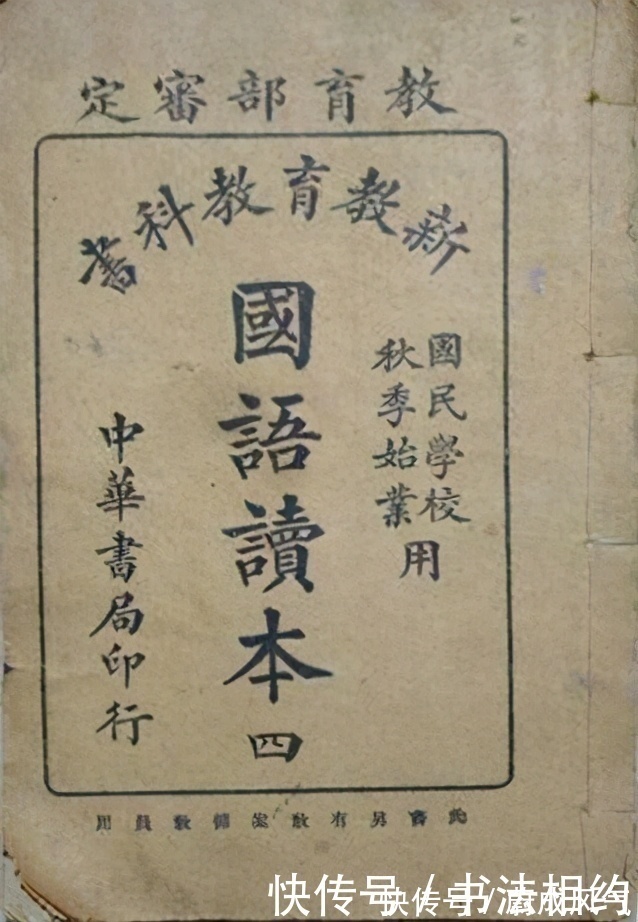 教育部審定
新教育教科書
國民學校
秋季始業
用
國語讀本 四
中華書局印行
此書另有教案備教員用
快传号 / 书法相约
快传号